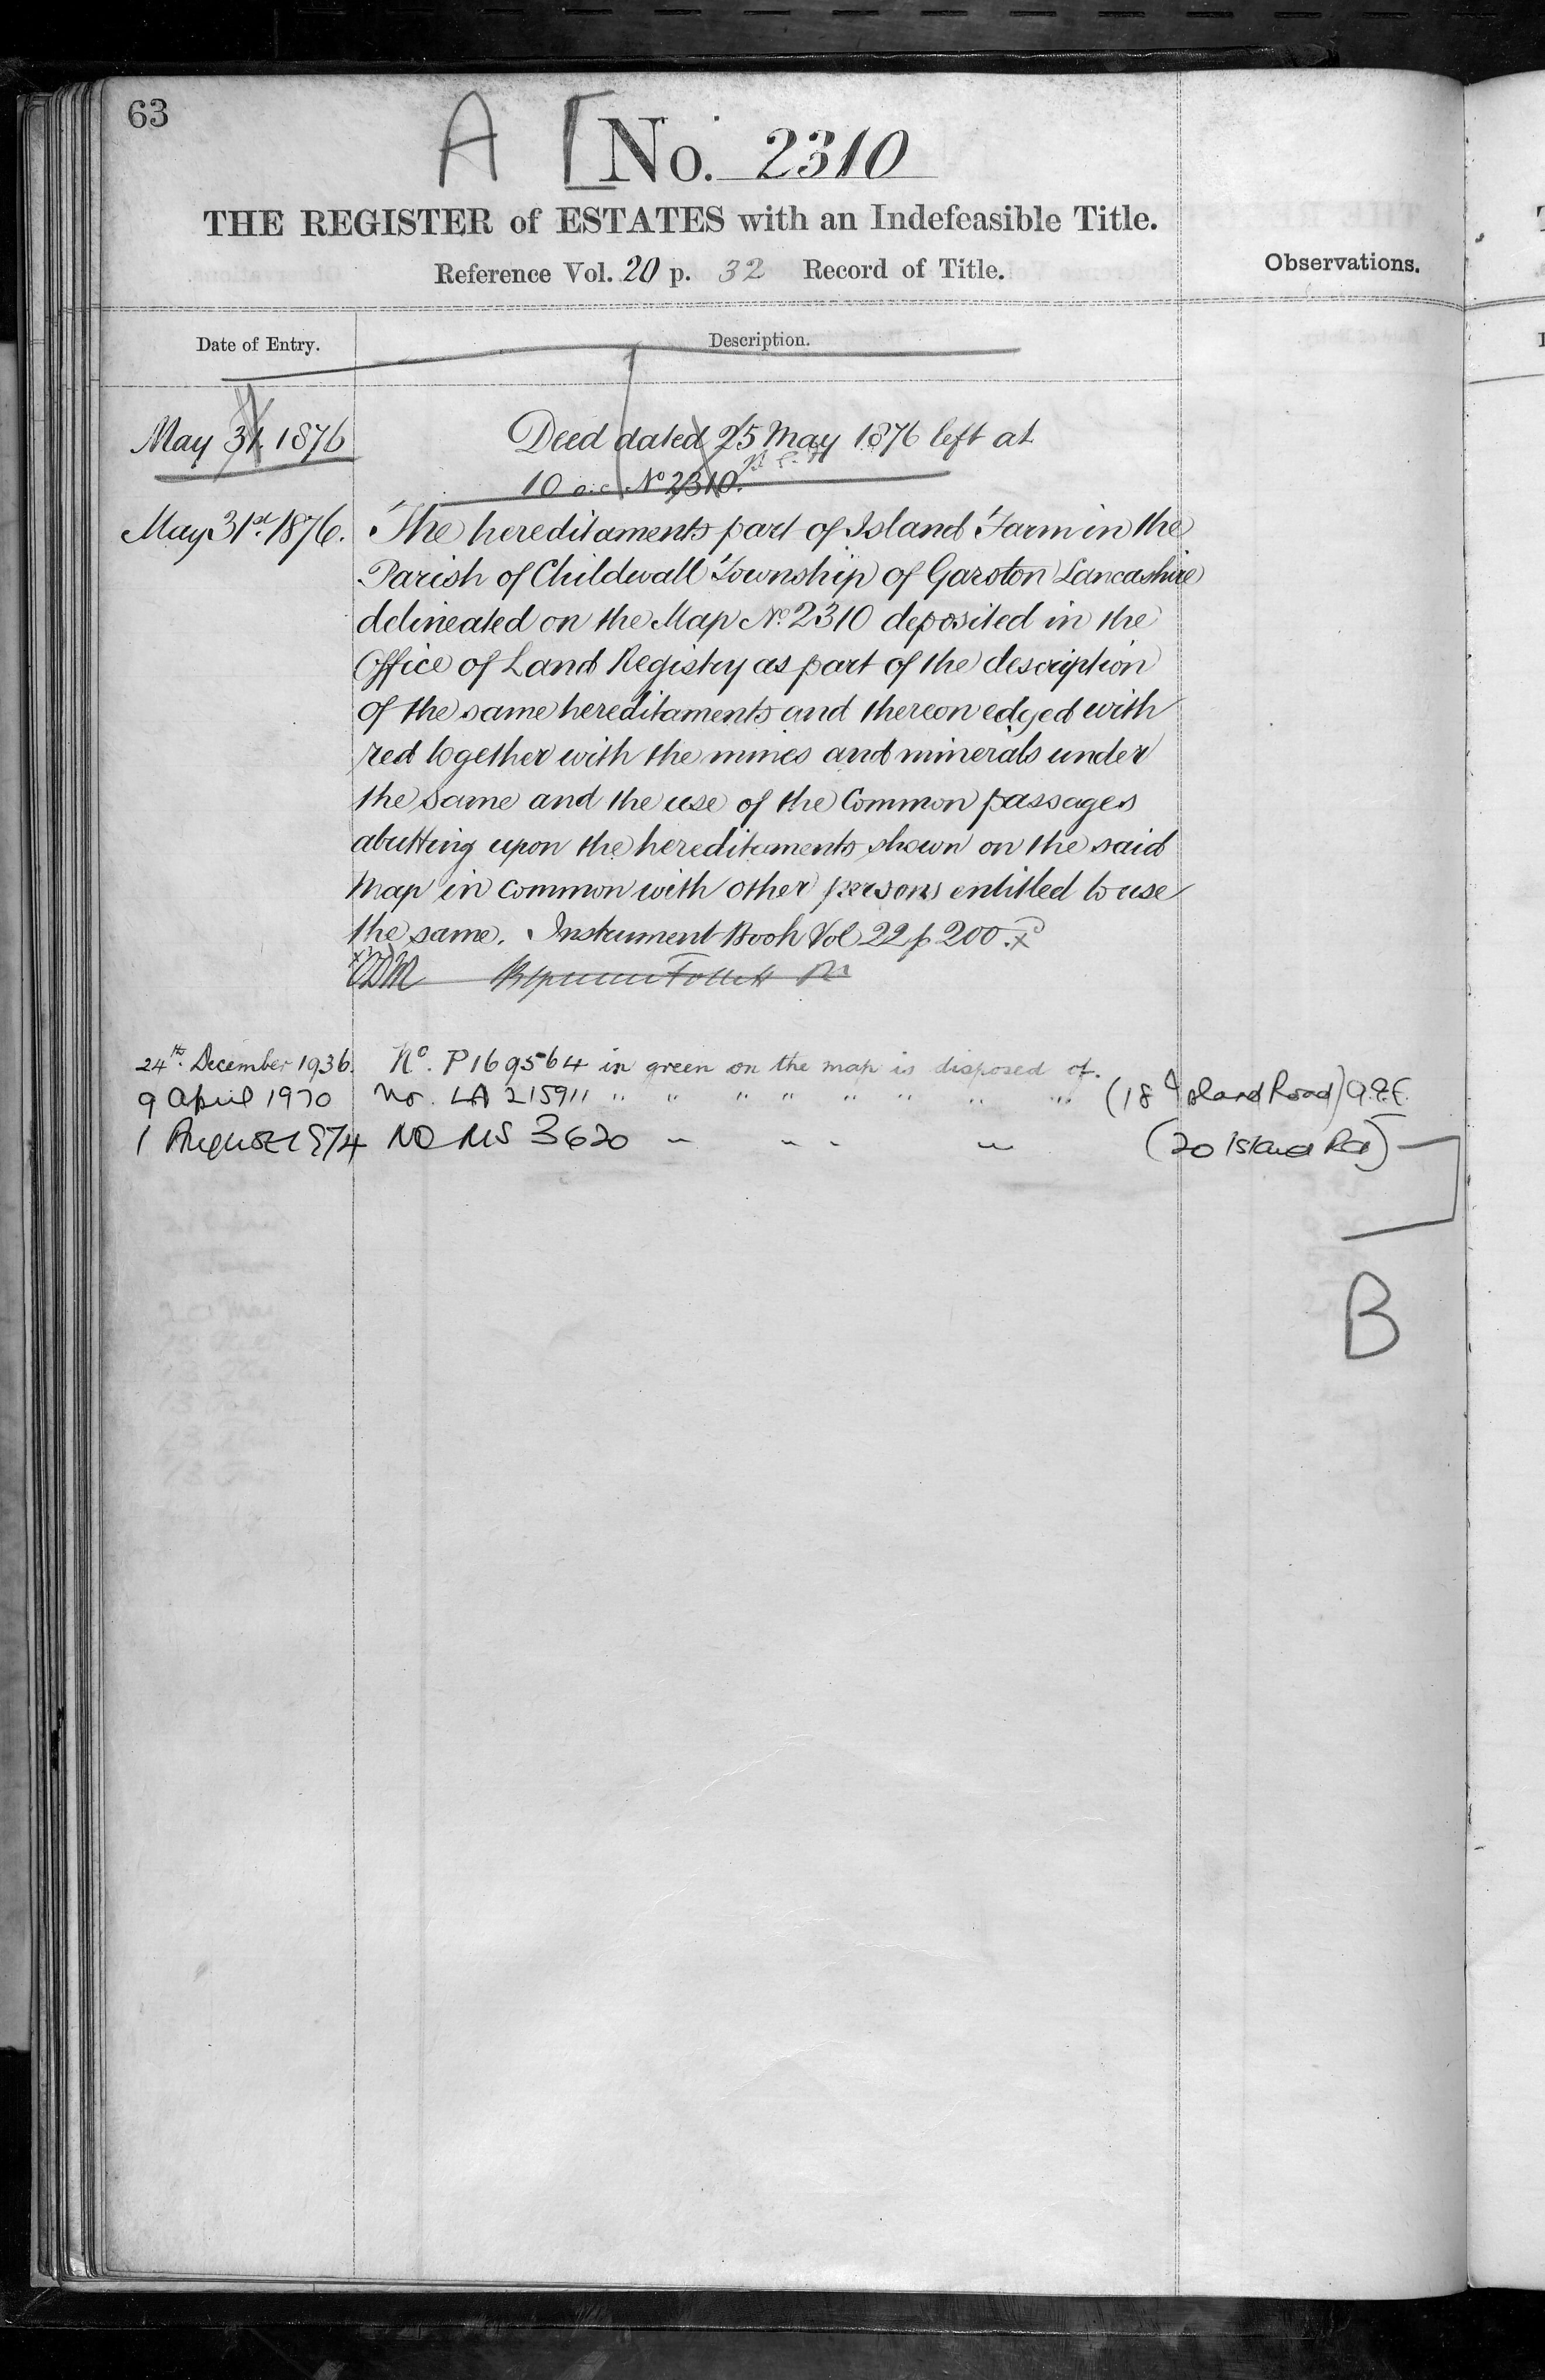 63
A [No. 2310
THE REGISTER of ESTATES with an Indefeasible Title.
Reference Vol. 20 p. 32 Record of Title.
Observations.
Date of Entry.
Description.
May 31. 1876
Deed dated 25 May 1876 left at
10 o.c No 2310.
May 31st 1876.
The hereditaments part of Island Farm in the
Parish of Childwall Township of Garston Lancashire
delineated on the Map No. 2310 deposited in the
Office of Land Registry as part of the description
of the same hereditaments and thereon edged with
red together with the mines and minerals under
the same and the use of the Common passages
abutting upon the hereditaments shown on the said
Map in common with other persons entitled to use
the same. Instrument Book Vol 22 p 200.
24th. December 1936. No. P169564 in green on the map is disposed of.
9 April 1970 No. LA 215911 " " " " " " " " (18 Island Road)
1 August 1974 NO MS 3620 " " " " (20 Island Rd)
B